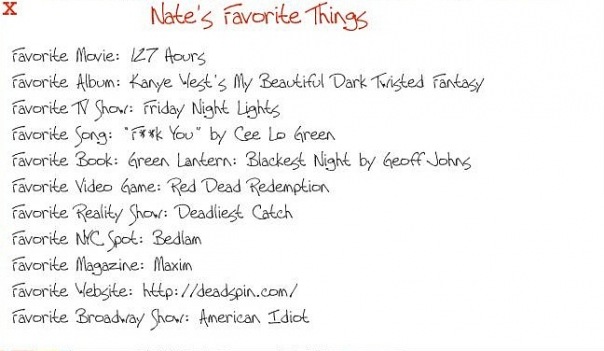 X
Nate's Favorite Things
Favorite Movie: 127 Hours
Favorite Album: Kanye West's My Beautiful Dark Twisted Fantasy
Favorite TV Show: Friday Night Lights
Favorite Song: "F**k You" by Cee Lo Green
Favorite Book: Green Lantern: Blackest Night by Geoff Johns
Favorite Video Game: Red Dead Redemption
Favorite Reality Show: Deadliest Catch
Favorite NYC Spot: Bedlam
Favorite Magazine: Maxim
Favorite Website: http://deadspin.com/
Favorite Broadway Show: American Idiot